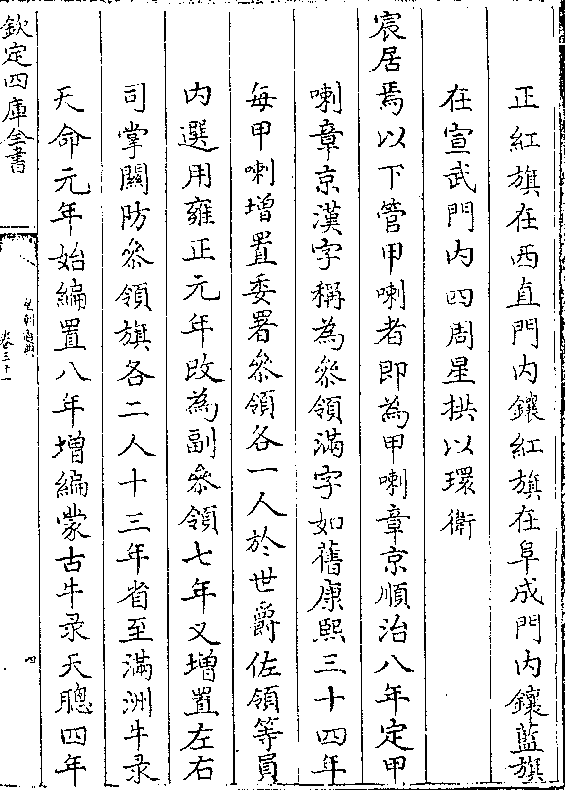 正紅旗在西直門内鑲紅旗在阜成門内鑲藍旗
在宣武門内四周星拱以環衛
宸居焉以下管甲喇者即為甲喇章京順治八年定甲
喇章京漢字稱為叅領滿字如舊康熙三十四年
每甲喇增置委署叅領各一人於世爵佐領等員
内選用雍正元年改為副叅領七年又增置左右
司掌關防叅領旗各二人十三年省至滿洲牛录
天命元年始編置八年增編蒙古牛录天聰四年
欽定四庫全書
卷三十一
四